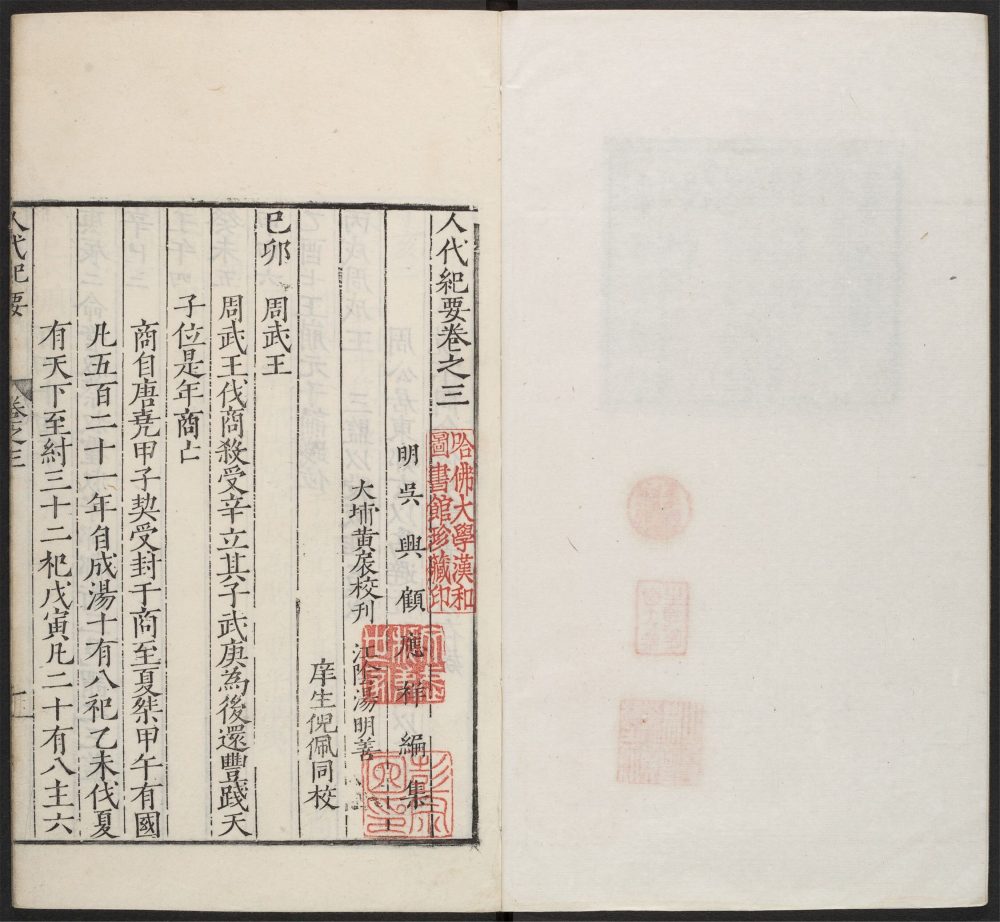 人代紀要卷之三
哈佛大學漢和
圖書館珍藏印
明吳興顧應祥編集
大埔黃扆校刊 江陰湯明善
庠生倪佩同校
己卯 周武王
周武王伐商殺受辛立其子武庚為後還豐踐天
子位是年商亡
商自唐堯甲子契受封于商至夏桀甲午有國
凡五百二十一年自成湯十有八祀乙未伐夏
有天下至紂三十二祀戊寅凡二十有八主六
人代紀要
卷之三
一